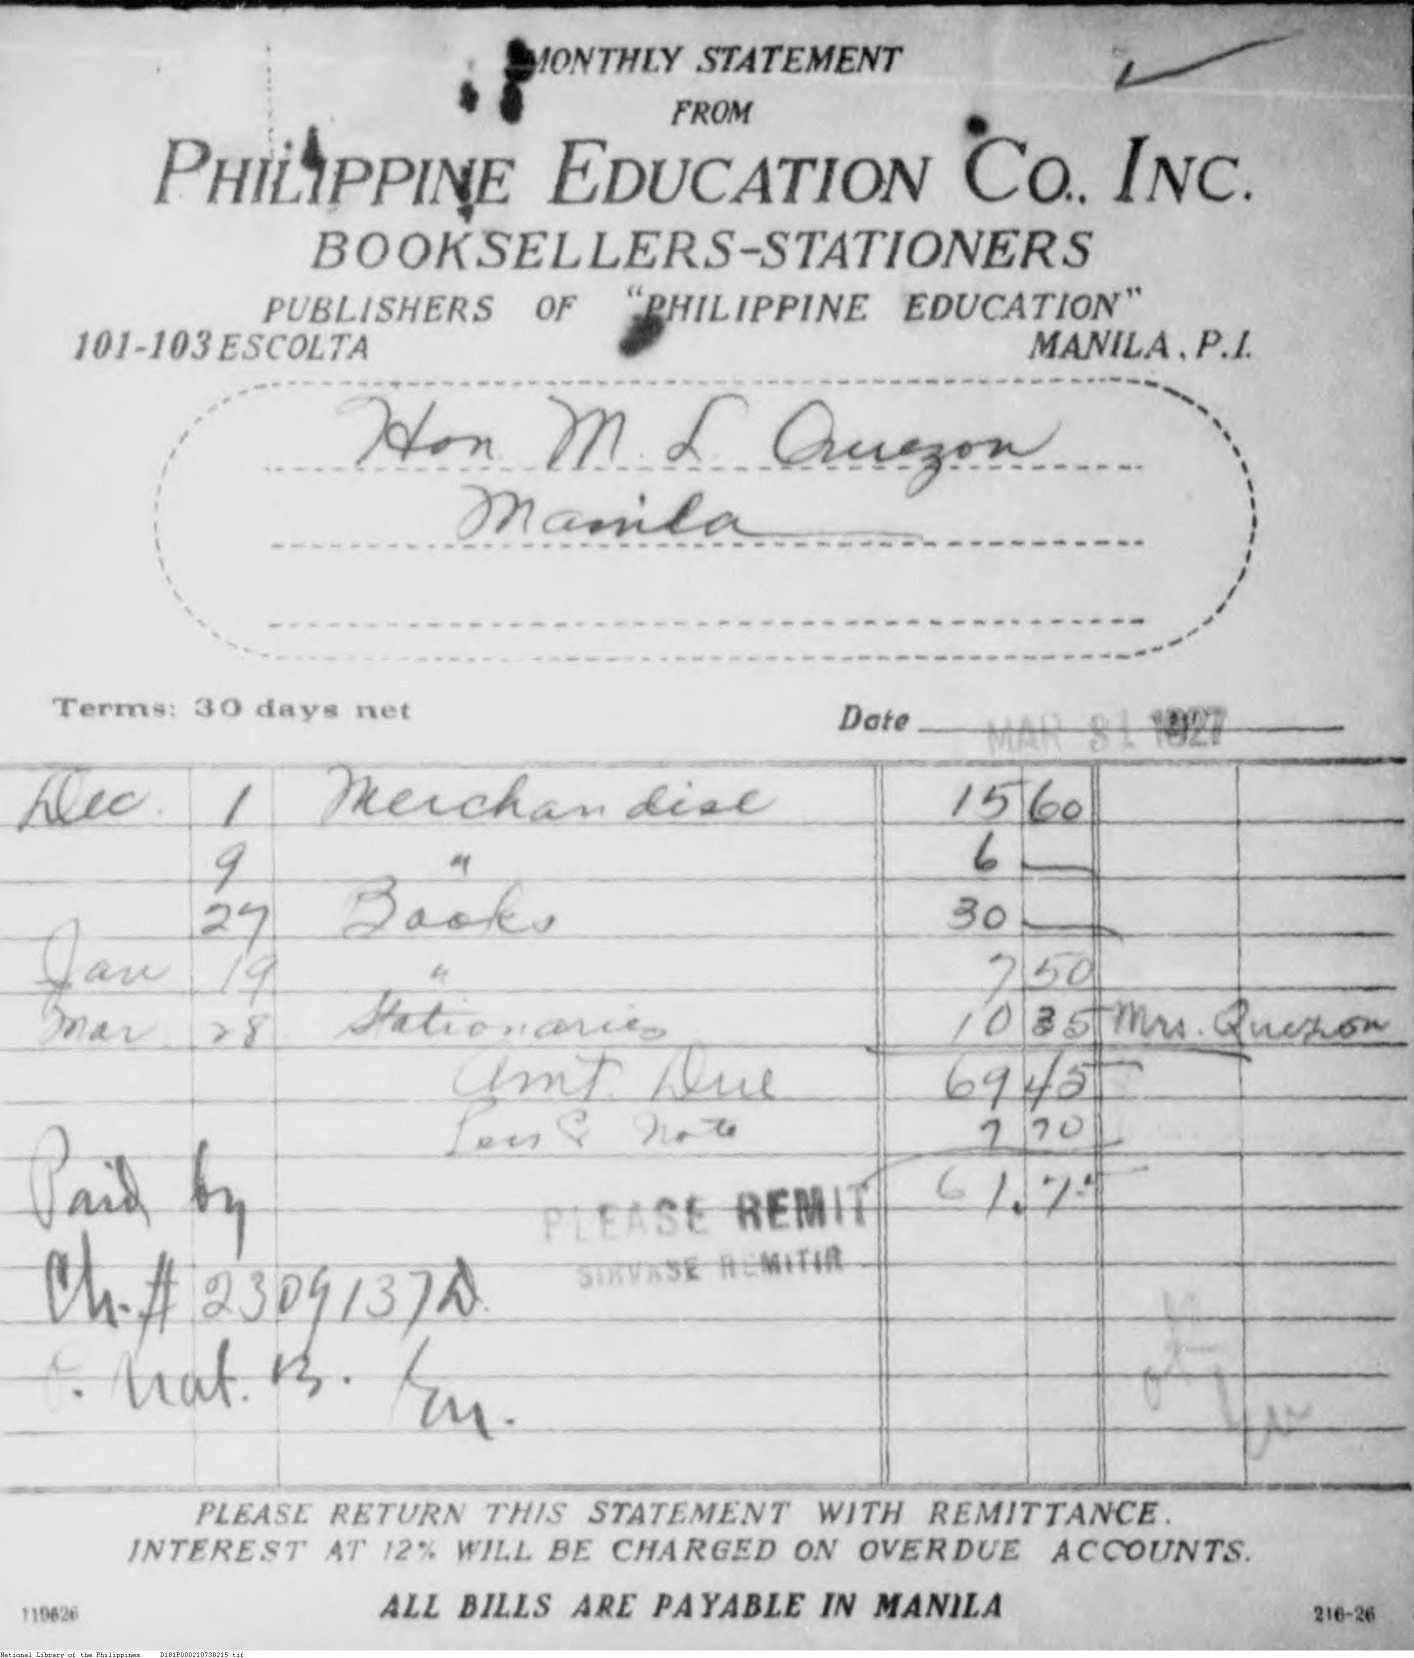 MONTHLY STATEMENT
FROM
PHILIPPINE EDUCATION CO., INC.
BOOKSELLERS-STATIONERS
PUBLISHERS OF "PHILIPPINE EDUCATION"
101-103 ESCOLTA MANILA, P.I.
Hon. M. L. Quezon
Manila
Terms: 30 days net
Date MAR 31 1927
Dec. 1 Merchandise 15 60
9 " 6 —
27 Books 30 —
Jan 19 " 7 50
Mar 28 Stationaries 10 35 Mrs. Quezon
Amt. Due 69 45
Note 7 70
61.75
Paid by
PLEASE REMIT
SIRVASE REMITIR
Ch. # 2309137D.
Nat. B.
PLEASE RETURN THIS STATEMENT WITH REMITTANCE.
INTEREST AT 12% WILL BE CHARGED ON OVERDUE ACCOUNTS.
ALL BILLS ARE PAYABLE IN MANILA
119626 216-26
National Library of the Philippines D181P000210730215.tif